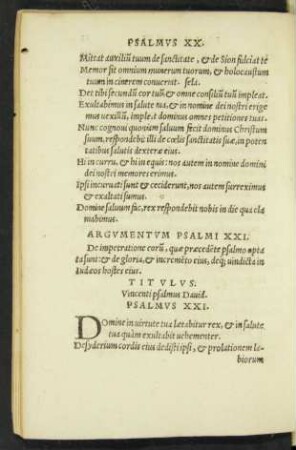 PSALMVS XX.
Mittat auxiliū tuum de sanctitate, & de Sion fulciat te
Memor sit omnium munerum tuorum, & holocaustum
tuum in cinerem conuertat. sela.
Det tibi secundū cor tuū & omne consiliū tuū impleat.
Exultabimus in salute tua, & in nomine dei nostri erige
mus uexillū, impleat dominus omnes petitiones tuas.
Nunc cognoui quoniam saluum fecit dominus Christum
suum, respondebit illi de cœlis sanctitatis suæ, in poten
tatibus salutis dexteræ eius.
Hi in curru, & hi in equis: nos autem in nomine domini
dei nostri memores erimus.
Ipsi incuruati sunt & ceciderunt, nos autem surreximus
& exaltati sumus.
Domine saluum fac, rex respondebit nobis in die qua cla
mabimus.
ARGVMENTVM PSALMI XXI.
De impetratione eorū, quæ præcedēte psalmo opta
ta sunt: & de gloria, & incremēto eius, deq; uindicta in
Iudæos hostes eius.
TITVLVS.
Vincenti psalmus Dauid.
PSALMVS XXI.
Domine in uirtute tua lætabitur rex, & in salute
tua quàm exultabit uehementer.
Desyderium cordis eius dedisti ipsi, & prolationem la-
biorum